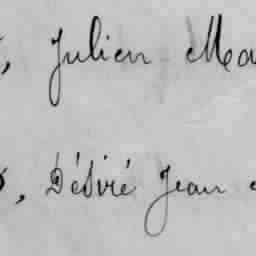 , Julien Ma
, Désiré Jean